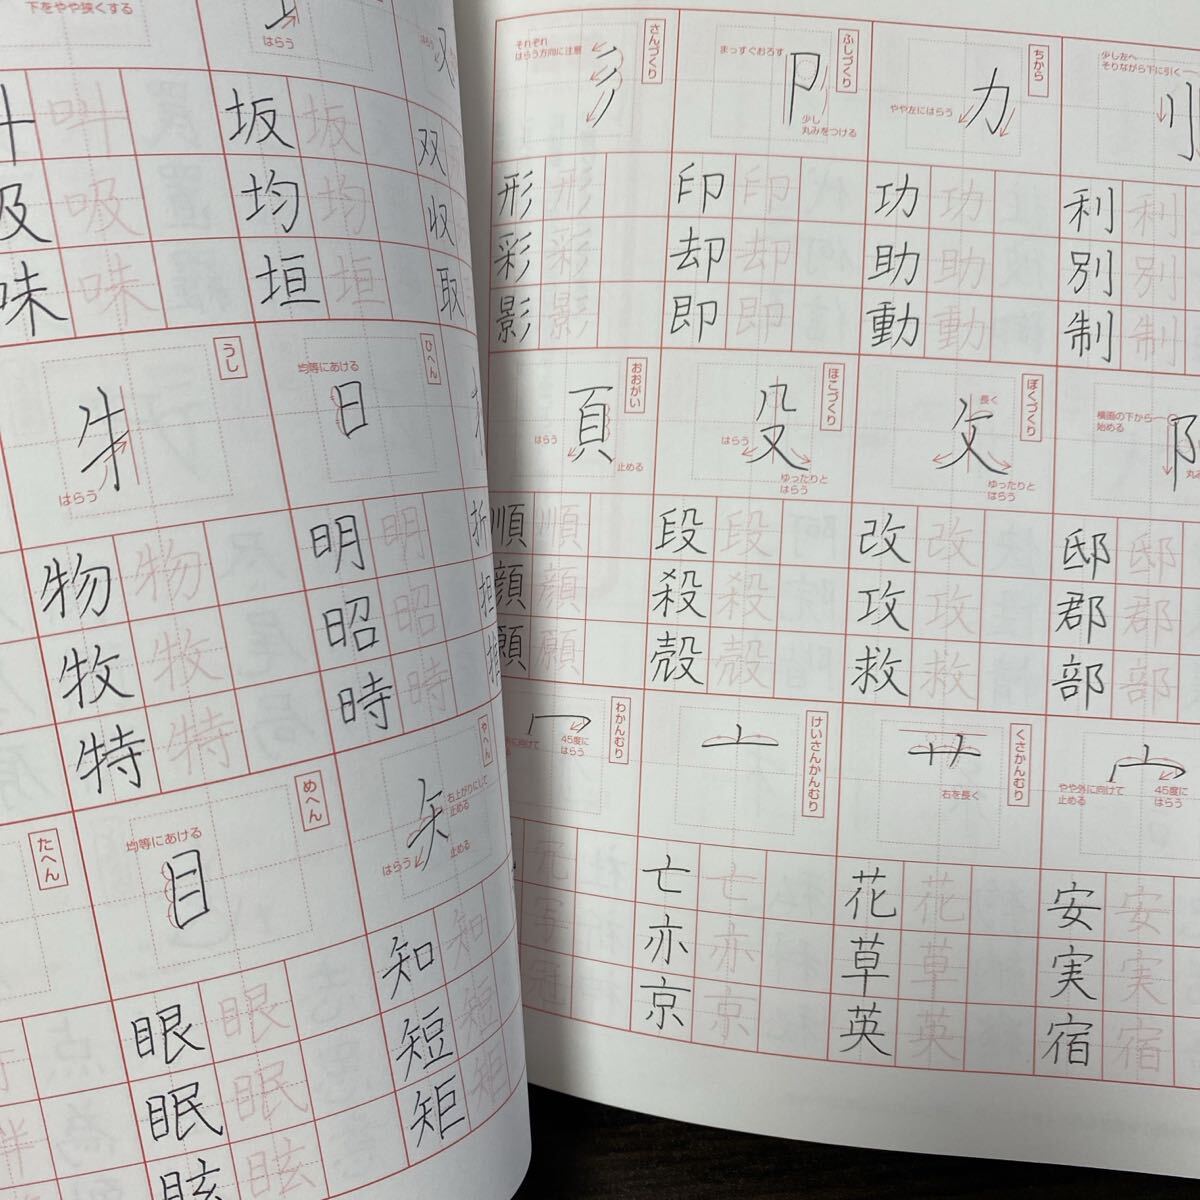 下をやや狭くする
はらう
はらう
叫 叫
吸 吸
味 味
坂 坂
均 均
垣 垣
双
収
取
うし
牛
はらう
物 物
牧 牧
特 特
ひへん
均等にあける
日
明 明
昭 昭
時 時
折
担
たへん
めへん
均等にあける
目
眼 眼
眠 眠
眩 眩
やへん
矢
右上がりにして
止める
はらう
止める
知 知
短 短
矩 矩
さんづくり
それぞれ
はらう方向に注意
彡
形 形
彩 彩
影 影
ふしづくり
まっすぐおろす
卩
少し
丸みをつける
印 印
却 却
即 即
ちから
やや左にはらう
力
功 功
助 助
動 動
少し左へ
そりながら下に引く
刂
利 利
別 別
制 制
おおがい
頁
はらう
止める
順 順
顔 顔
願 願
ほこづくり
殳
はらう
ゆったりと
はらう
段 段
殺 殺
殻 殻
ぼくづくり
長く
攵
ゆったりと
はらう
改 改
攻 攻
救 救
横画の下から
始める
阝
邸 邸
郡 郡
部 部
わかんむり
冖
45度に
はらう
冗
写
冠
けいさんかんむり
亠
亡 亡
亦 亦
京 京
くさかんむり
艹
右を長く
花 花
草 草
英 英
宀
やや外に向けて
止める
45度に
はらう
安 安
実 実
宿 宿